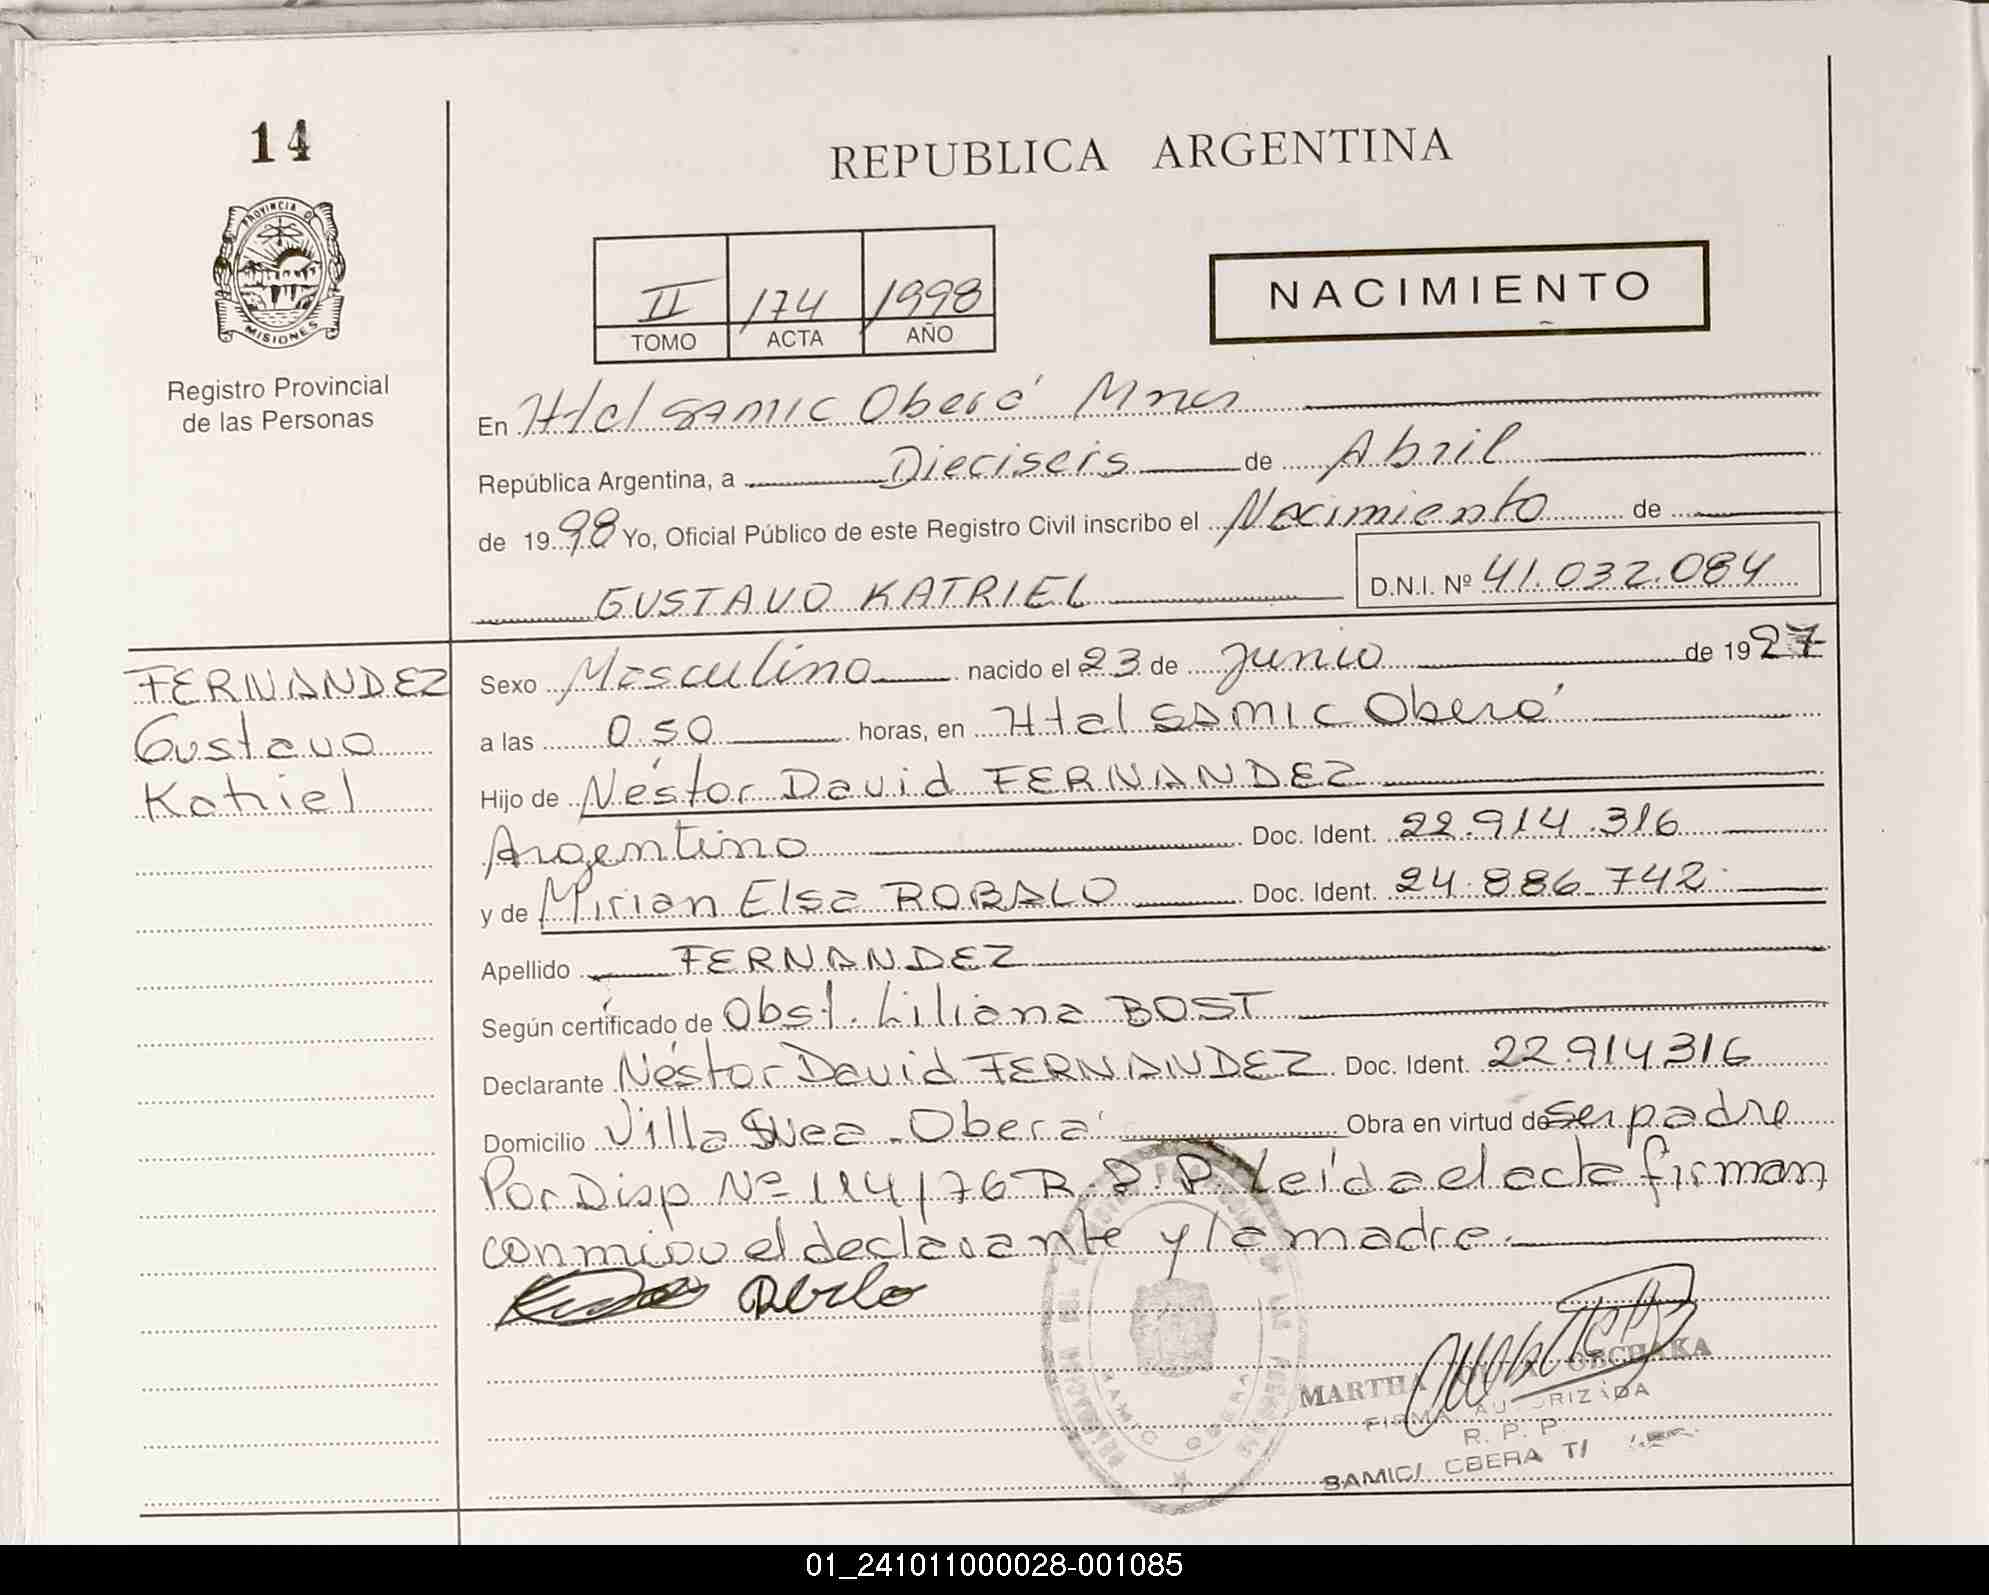 14
REPUBLICA ARGENTINA
PROVINCIA DE
MISIONES
Registro Provincial
de las Personas
II /174 /1998
TOMO ACTA AÑO
NACIMIENTO
En Htal SAMIC Oberá Mnes
República Argentina, a Dieciseis de Abril
de 1998 Yo, Oficial Público de este Registro Civil inscribo el Nacimiento de
GUSTAVO KATRIEL D.N.I. Nº 41.032.084
FERNANDEZ
Gustavo
Katriel
Sexo Masculino nacido el 23 de Junio de 1997
a las 0.50 horas, en Htal SAMIC Oberá
Hijo de Néstor David FERNANDEZ
Argentino Doc. Ident. 22.914.316
y de Mirian Elsa ROBALO Doc. Ident. 24.886.742
Apellido FERNANDEZ
Según certificado de Obst. Liliana BOST
Declarante Néstor David FERNANDEZ Doc. Ident. 22.914316
Domicilio Villa Svea - Oberá Obra en virtud de ser padre
Por Disp Nº 114/76 R.P.P. Leída el acta firman,
conmigo el declarante y la madre.
MARTHA OBCHAKA
FIRMA AUTORIZADA
R. P. P.
SAMIC/ OBERA
SAMIC OBERA
01_241011000028-001085